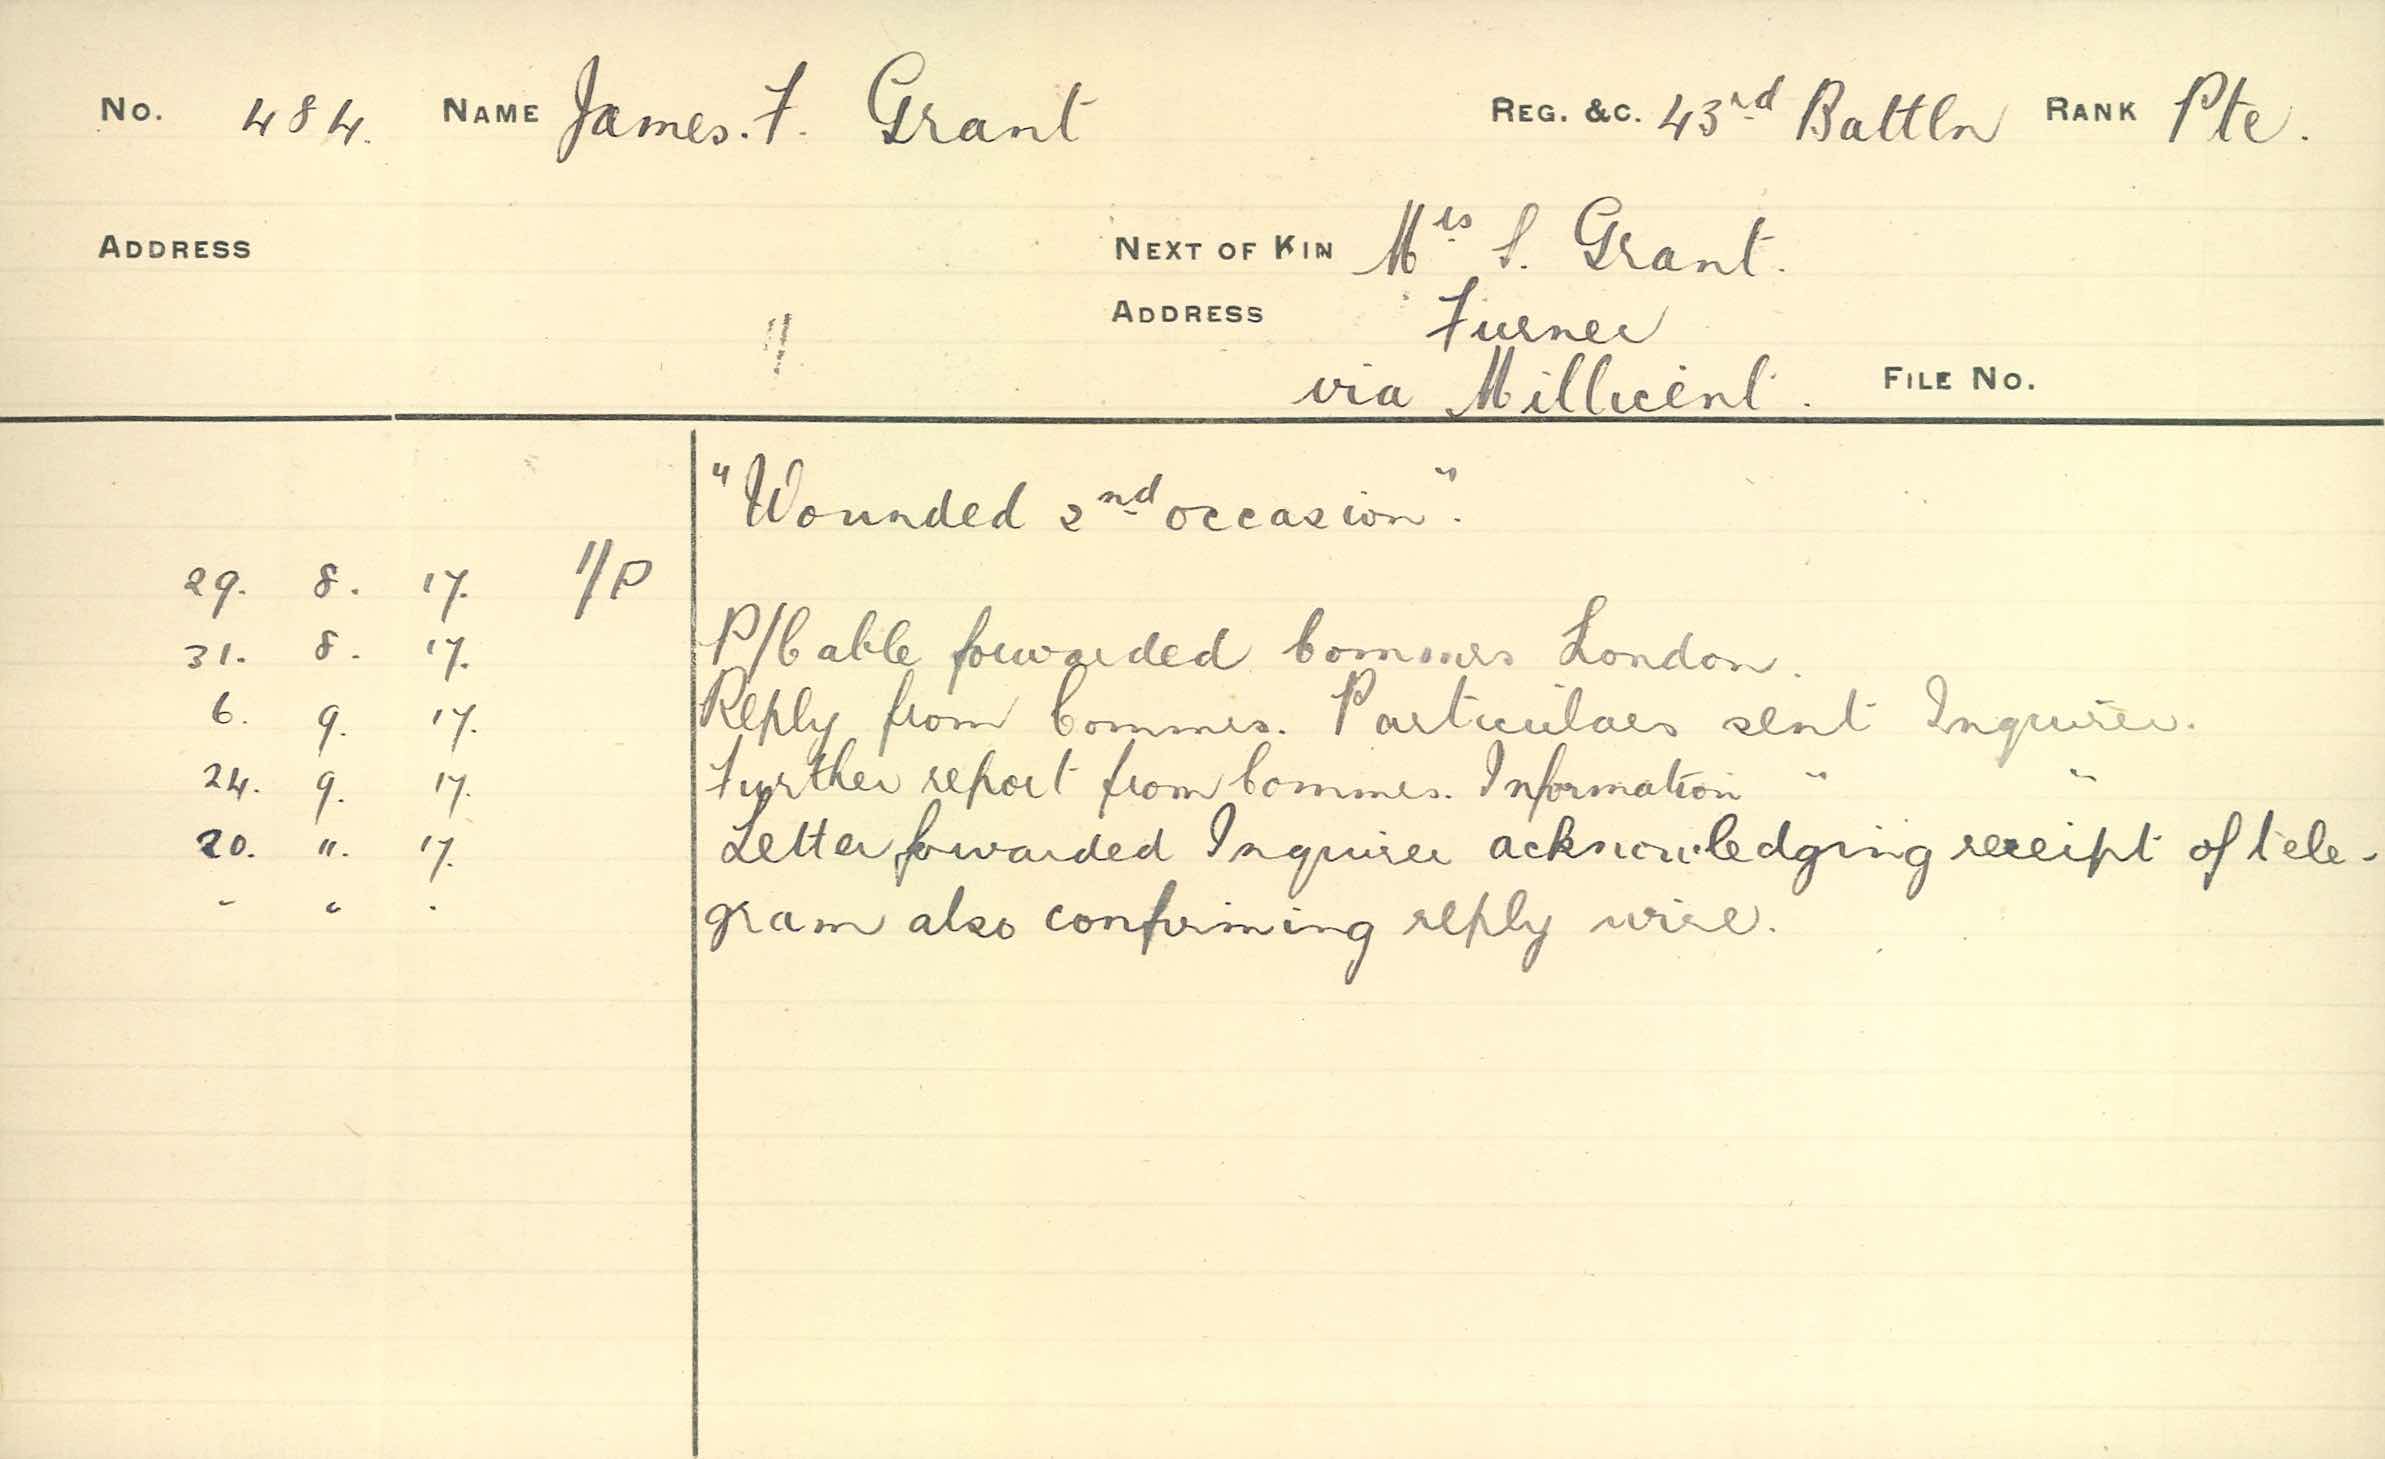 No. 484. NAME James. F. Grant REG. &C. 43rd Battln RANK Pte.
ADDRESS NEXT OF KIN Mrs S. Grant.
ADDRESS Furner
via Millicent. FILE No.
"Wounded 2nd occasion".
29. 8. 17.
31. 8. 17. P/Cable forwarded Commrs London.
6. 9. 17. Reply from Commrs. Particulars sent Inquirer.
24. 9. 17. Further report from Commrs. Information " "
20. 11. 17. Letter forwarded Inquirer acknowledging receipt of tele-
" " " gram also confirming reply wire.